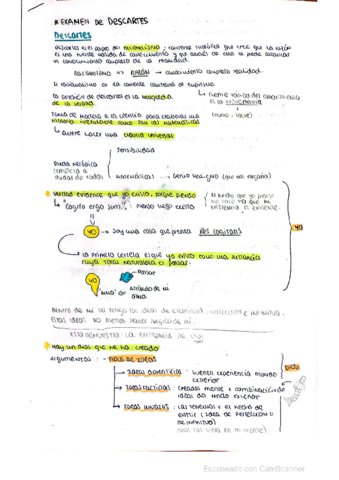 * EXAMEN DE DESCARTES
DESCARTES
Descartes es el padre del racionalismo, corriente filosófica que cree que la razón
es una fuente válida de conocimiento y que a través de ella se puede alcanzar
un conocimiento completo de la realidad.
RACIONALISMO => RAZÓN → conocimiento completo realidad.
El racionalismo es la corriente contraria al empirismo
La condición de Descartes es la búsqueda
de la verdad.
↳ fuente válida del conocimiento
es la experiencia
Toma de modelo a la ciencia para elaborar un
como son las matemáticas
(Hume, Locke)
↳ Quiere hacer una ciencia universal
Sensibilidad
Duda metódica
(empieza a
dudar de todo)
Matemáticas ... Genio maligno (que nos engaña)
* Verdad evidente que yo existo, porque pienso
↳ "Cogito ergo sum": pienso luego existo
El hecho que yo piense
me hace ver que mi
existencia es evidente.
YO → Soy una cosa que piensa RES COGITANS
YO
↳ La primera certeza es que yo existo como una sustancia
cuya total naturaleza es pensar.
YO
Pensar
alma
Dentro de mí yo tengo las ideas de eternidad, perfección e infinitud.
Estas ideas no pueden haber surgido de mí.
ESTO DEMUESTRA LA EXISTENCIA DE DIOS
* Hay un Dios que me ha creado
Argumentos: TIPOS DE IDEAS
→ IDEAS ADVENTICIAS: vienen experiencia mundo
exterior
→ IDEAS FACTICIAS: creadas mente x combinación de
ideas del mundo exterior
→ IDEAS INNATAS: Las tenemos x el hecho de
existir (idea de perfección o
de infinito)
DIOS
Escaneado con CamScanner